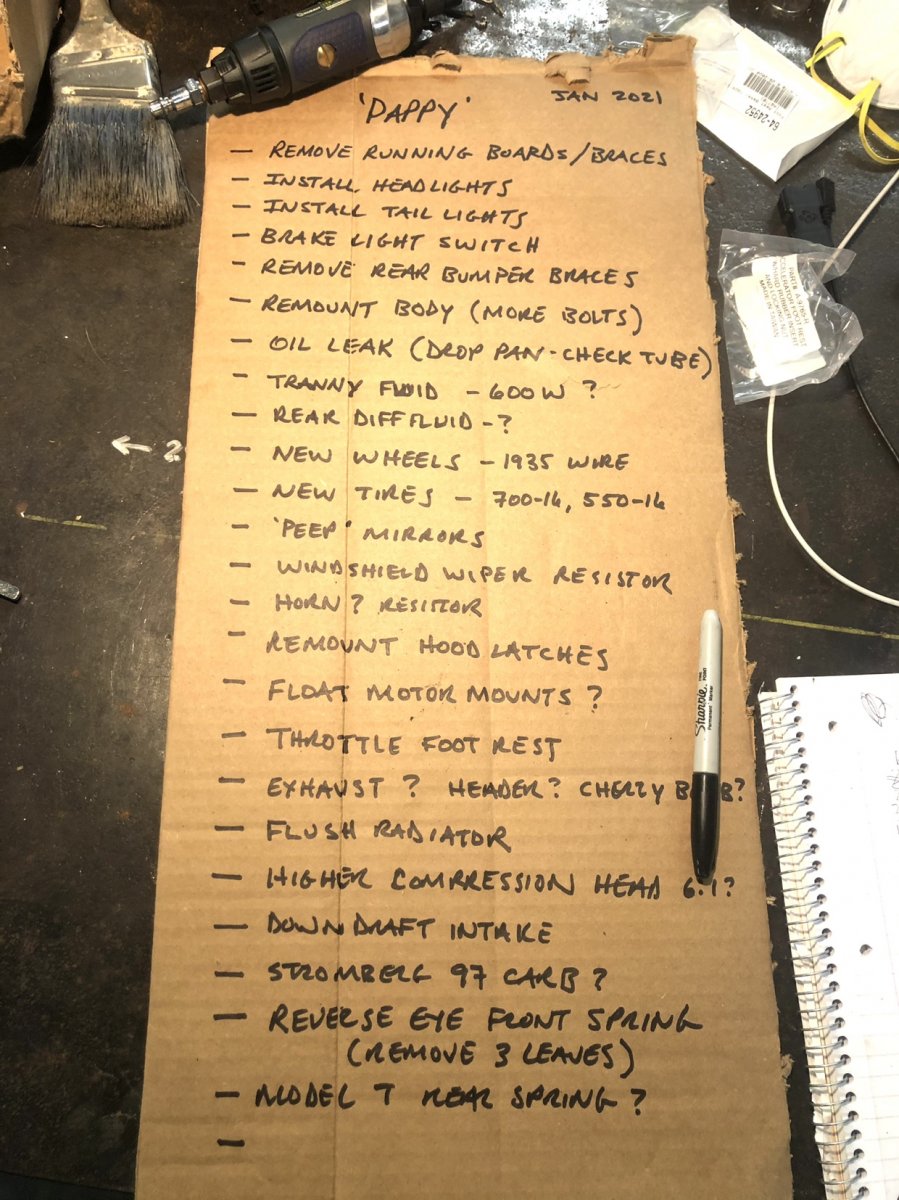 'PAPPY'
JAN 2021
— REMOVE RUNNING BOARDS/BRACES
— INSTALL HEADLIGHTS
— INSTALL TAIL LIGHTS
— BRAKE LIGHT SWITCH
— REMOVE REAR BUMPER BRACES
— REMOUNT BODY (MORE BOLTS)
— OIL LEAK (DROP PAN-CHECK TUBE)
— TRANNY FLUID - 600W ?
— REAR DIFF FLUID - ?
— NEW WHEELS - 1935 WIRE
— NEW TIRES - 700-16, 550-16
— 'PEEP' MIRRORS
— WINDSHIELD WIPER RESISTOR
— HORN? RESISTOR
— REMOUNT HOOD LATCHES
— FLOAT MOTOR MOUNTS ?
— THROTTLE FOOT REST
— EXHAUST ? HEADER? CHERRY ?
— FLUSH RADIATOR
— HIGHER COMPRESSION HEAD 6:1?
— DOWNDRAFT INTAKE
— STROMBERG 97 CARB?
— REVERSE EYE FRONT SPRING
(REMOVE 3 LEAVES)
— MODEL T REAR SPRING?
—
← ?
64-24352
PART# A-9765-R
ACCELERATOR FOOT REST
W/HARD RUBBER INSERT
AND LOCKING NUT
MADE IN TAIWAN
Sharpie
FINE POINT
Permanent Marker